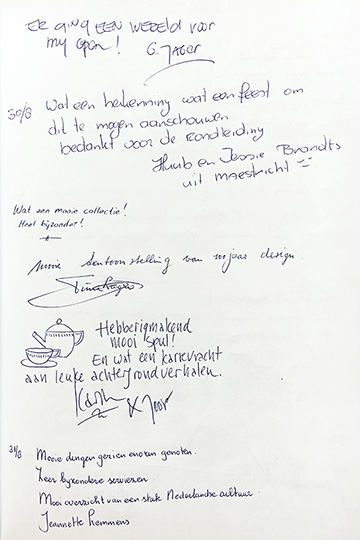 ER GING EEN WERELD voor
my open! G. JAGER
30/8 Wat een herkenning wat een feest om
dit te mogen aanschouwen
bedankt voor de rondleiding
Huub en Jessie Brandts
uit maastricht
Wat een mooie collectie!
Heel bijzonder!
mooie tentoonstelling van jaar design.
Hebberigmakend
mooi spul!
En wat een karrevracht
aan leuke achtergrondverhalen.
& Joor
31/8 Mooie dingen gezien en oren genoten.
Zeer byzondere serviezen.
Mooi overzicht van een stuk Nederlandse cultuur.
Jeannette Lemmens